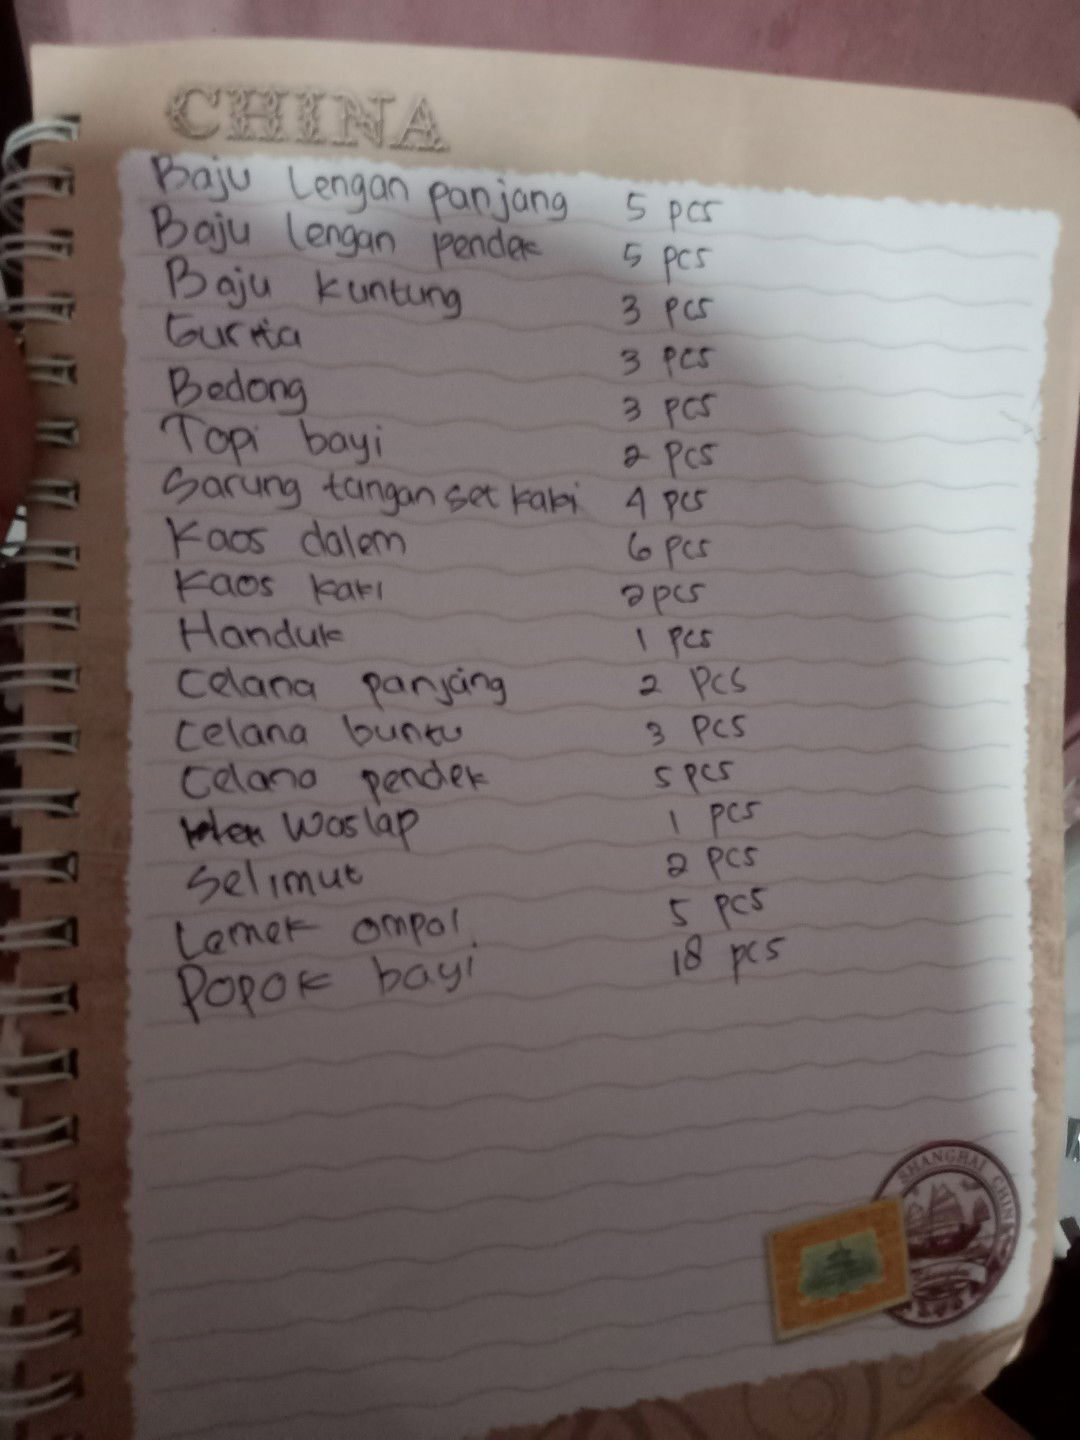 CHINA
Baju Lengan panjang 5 pcs
Baju lengan pendek 5 pcs
Baju kuntung 3 pcs
Gurita 3 pcs
Bedong 3 pcs
Topi bayi 2 pcs
Sarung tangan set kaki 4 pcs
Kaos dalem 6 pcs
Kaos kaki 2 pcs
Handuk 1 pcs
Celana panjang 2 pcs
Celana buntu 3 pcs
Celana pendek 5 pcs
Waslap 1 pcs
Selimut 2 pcs
Lemek ompol 5 pcs
Popok bayi 18 pcs
SHANGHAI CHINA